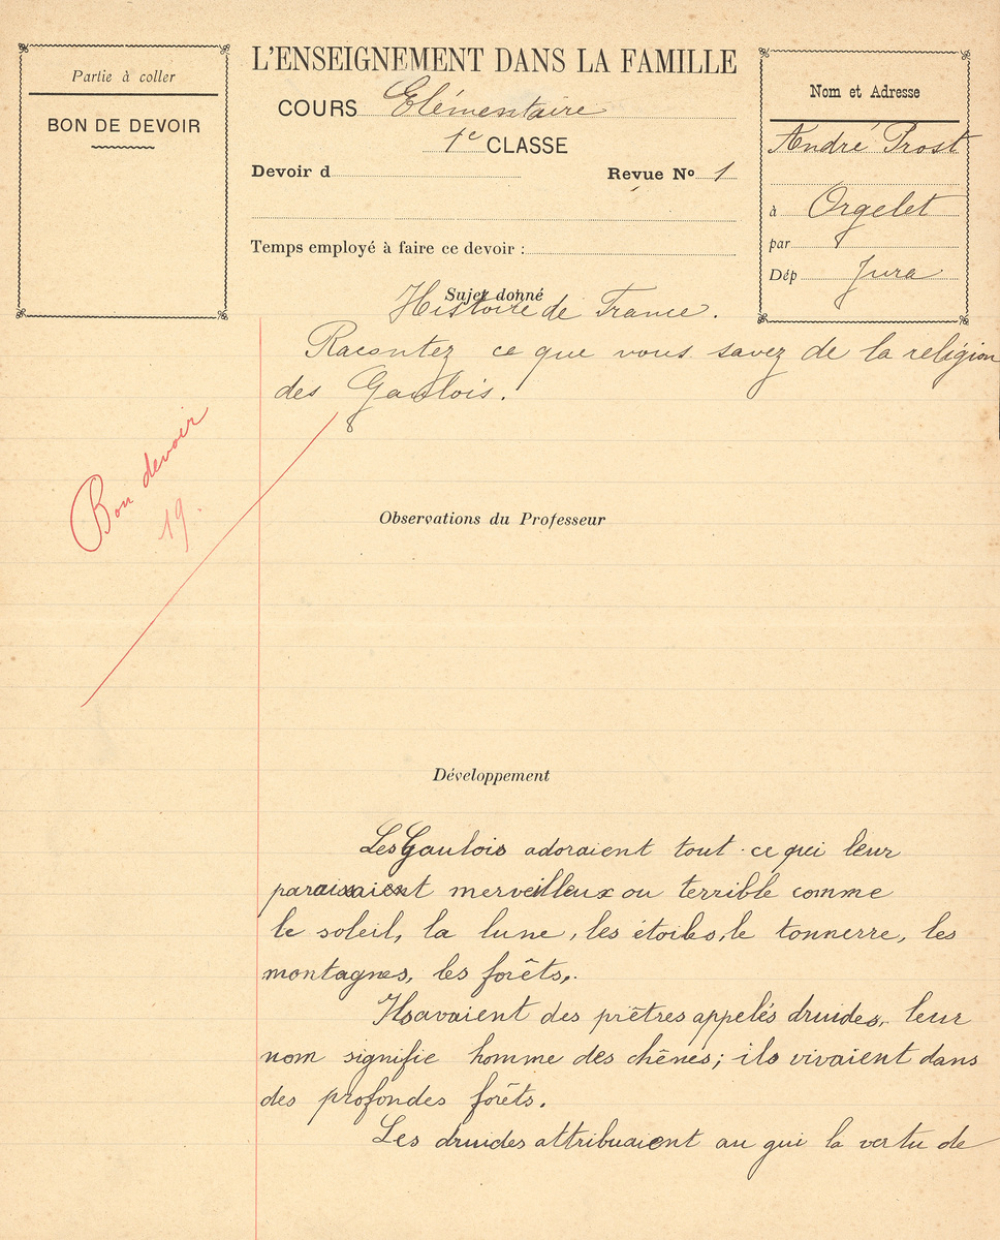 Partie à coller
BON DE DEVOIR
L'ENSEIGNEMENT DANS LA FAMILLE
COURS Elémentaire
1e CLASSE
Devoir d
Revue No 1
Temps employé à faire ce devoir :
Nom et Adresse
André Prost
à Orgelet
par
Dép Jura
Sujet donné
Histoire de France.
Racontez ce que vous savez de la religion
des Gaulois.
Bon devoir
19.
Observations du Professeur
Développement
Les Gaulois adoraient tout ce qui leur
paraissaient merveilleux ou terrible comme
le soleil, la lune, les étoiles, le tonnerre, les
montagnes, les forêts,.
Ils avaient des prêtres appelés druides, leur
nom signifie homme des chênes; ils vivaient dans
des profondes forêts.
Les druides attribuaient au gui la vertu de